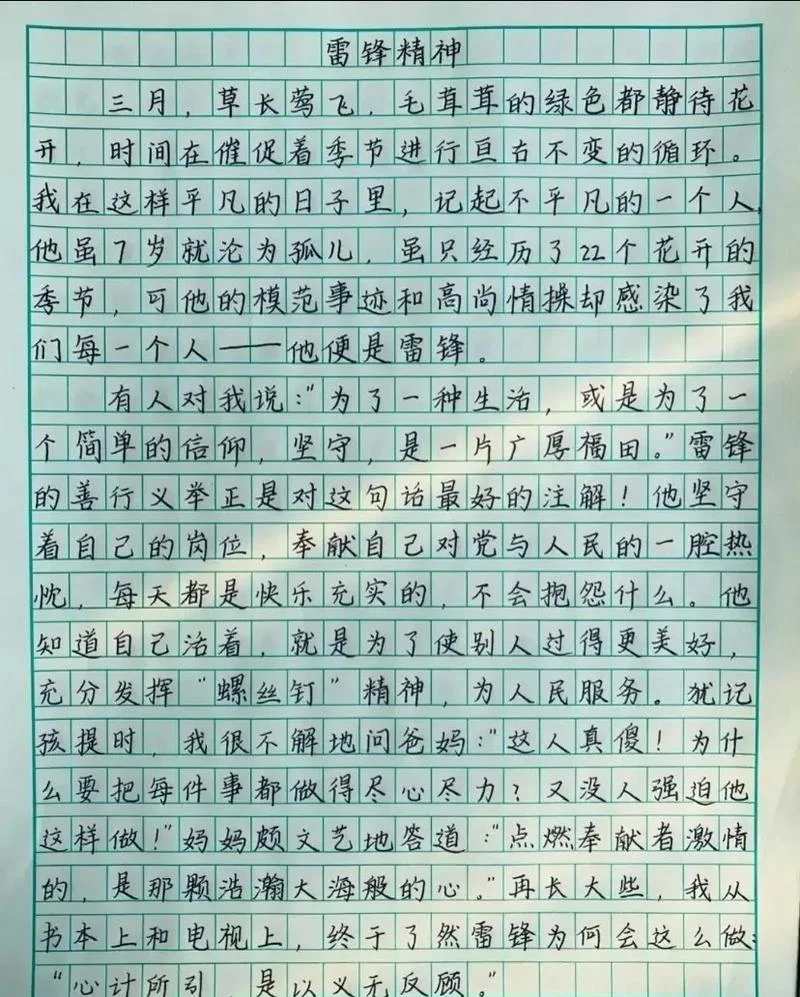 雷锋精神
三月，草长莺飞，毛茸茸的绿色都静待花
开，时间在催促着季节进行亘古不变的循环。
我在这样平凡的日子里，记起不平凡的一个人，
他虽7岁就沦为孤儿，虽只经历了22个花开的
季节，可他的模范事迹和高尚情操却感染了我
们每一个人——他便是雷锋。
有人对我说：“为了一种生活，或是为了一
个简单的信仰，坚守，是一片广厚福田。”雷锋
的善行义举正是对这句话最好的注解！他坚守
着自己的岗位，奉献自己对党与人民的一腔热
忱，每天都是快乐充实的，不会抱怨什么。他
知道自己活着，就是为了使别人过得更美好，
充分发挥“螺丝钉”精神，为人民服务。犹记
孩提时，我很不解地问爸妈：“这人真傻！为什
么要把每件事都做得尽心尽力？又没人强迫他
这样做！”妈妈颇文艺地答道：“点燃奉献者激情
的，是那颗浩瀚大海般的心。”再长大些，我从
书本上和电视上，终于了然雷锋为何会这么做：
“心计所引，是以义无反顾。”